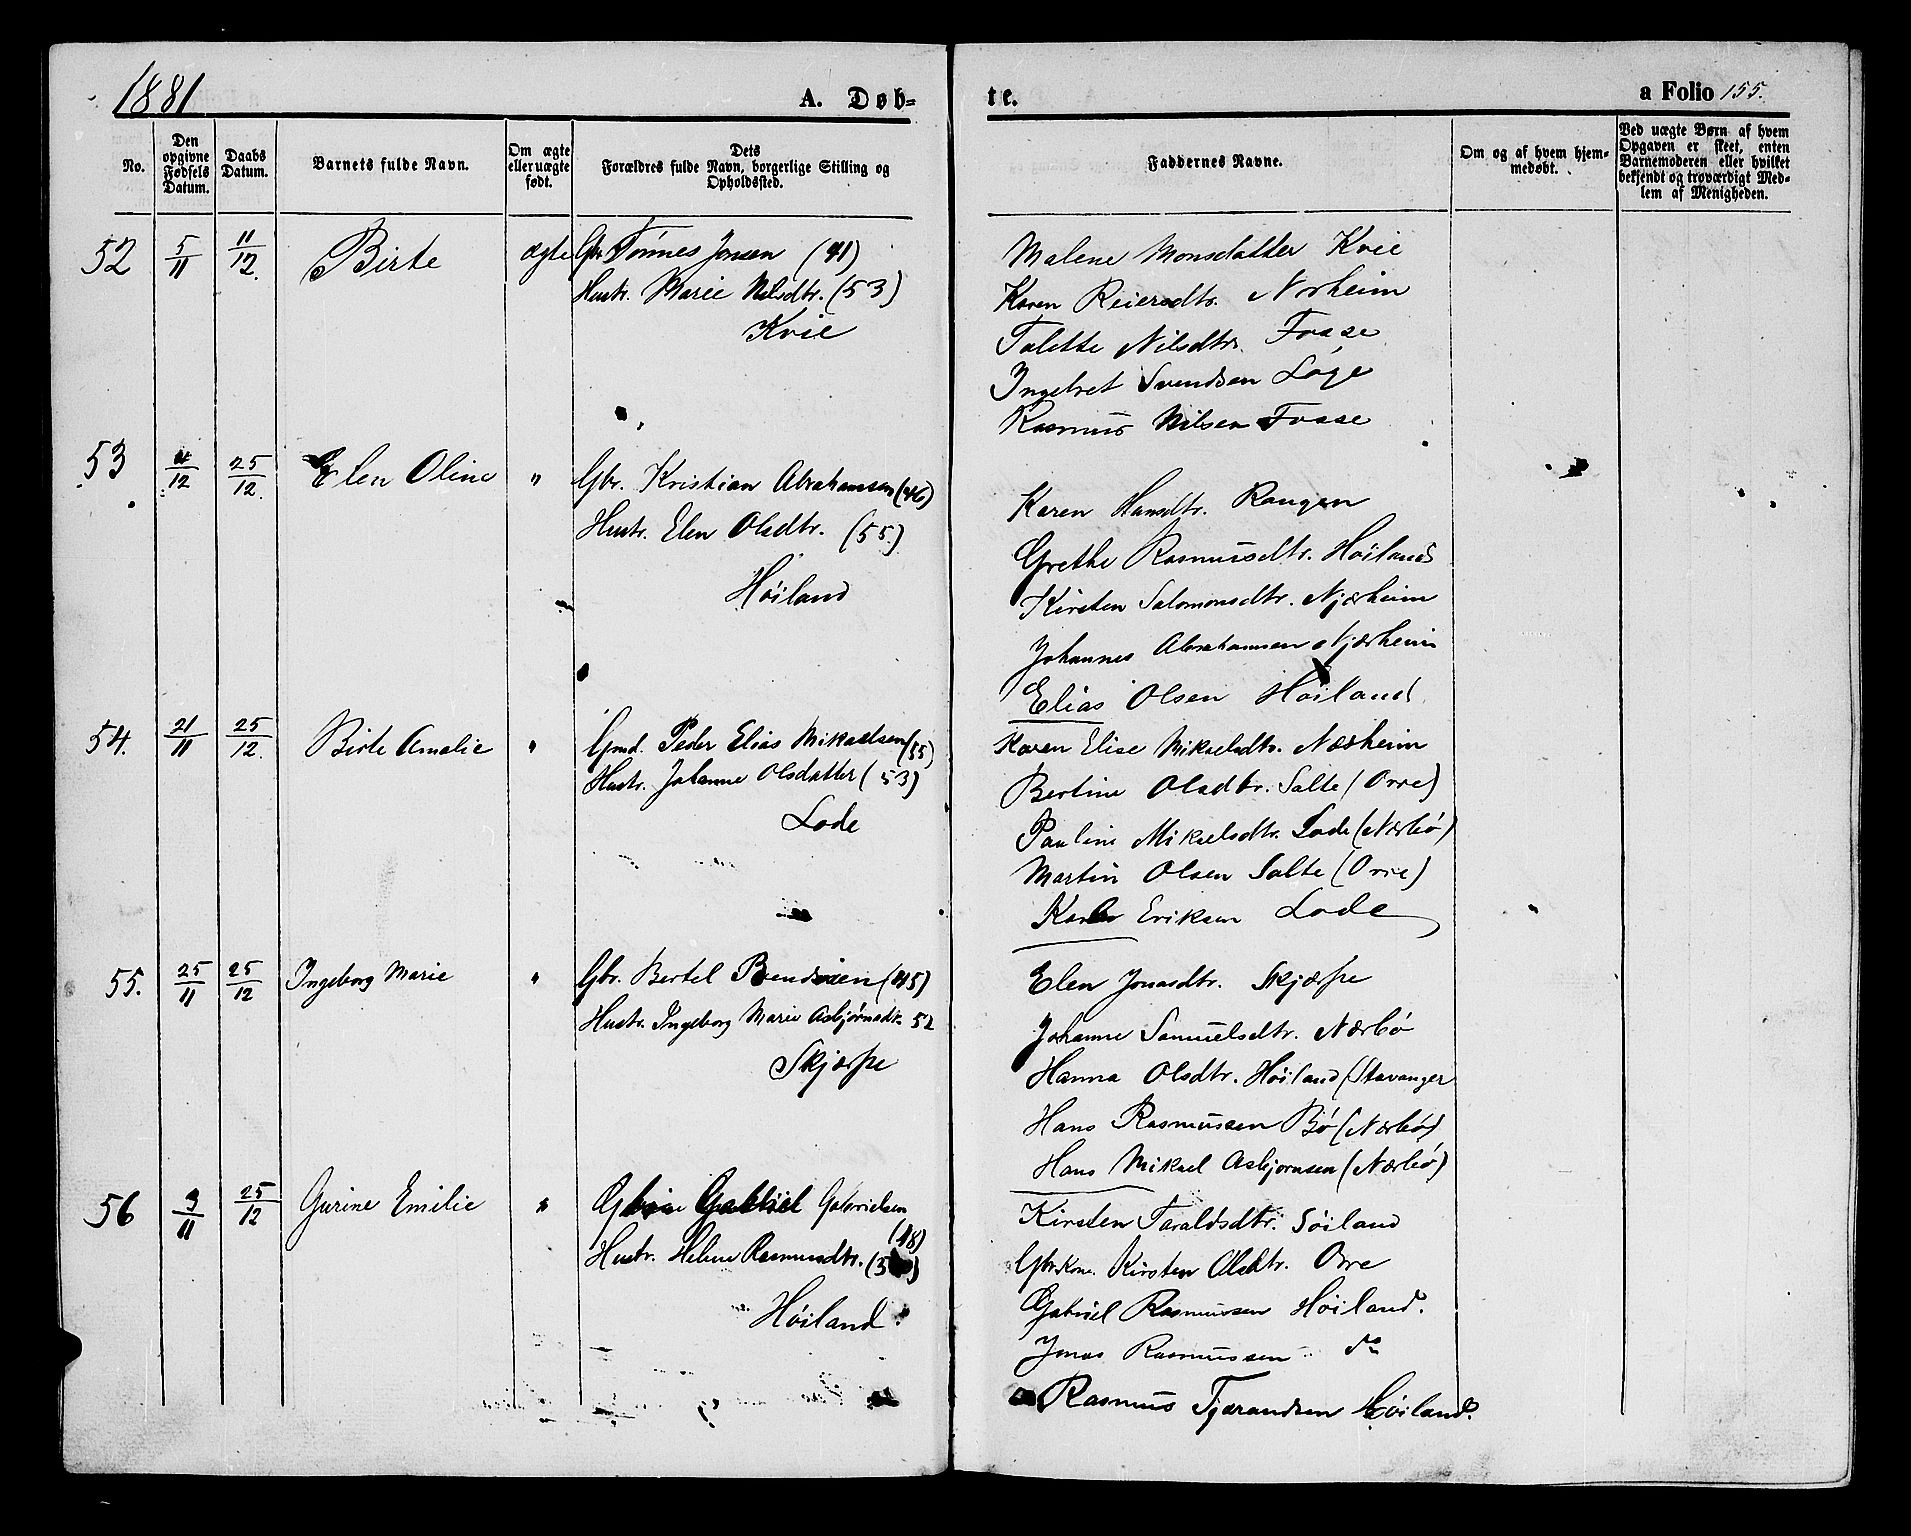 1881
A. Døb=
te.
a Folio 155.
No.
Den opgivne Fødsels Datum.
Daabs Datum.
Barnets fulde Navn.
Om ægte eller uægte født.
Dets Forældres fulde Navn, borgerlige Stilling og Opholdsted.
Faddernes Navne.
Om og af hvem hjemmedøbt.
Ved uægte Børn af hvem Opgaven er skeet, enten Barnemoderen eller hvilket bekjendt og troværdigt Medlem af Menigheden.
52 5/11 11/12. Birte ægte Gbr. Tönnes Jonsen (41)
Hustr. Marie Nilsdtr. (53)
Kvie
Malene Monsdatter Kvie
Karen Reiersdtr. Norheim
Talette Nilsdtr. Fosse
Ingebret Svendsen Löge
Rasmus Nilsen Fosse
53 4/12 25/12. Elen Oline " Gbr. Kristian Abrahamsen (46)
Hustr. Elen Olsdtr. (55.)
Höiland
Karen Hansdtr. Raugen
Grethe Rasmusdtr. Höiland
Kirsten Salomonsdtr. Njærheim
Johannes Abrahamsen Njærheim
Elias Olsen Höiland
54. 21/11 25/12. Birte Amalie " Gmd. Peder Elias Mikaelsen (55)
Hustr. Johanne Olsdatter (53)
Lode
Karen Elise Mikaelsdtr. Nærheim
Bertine Olsdtr. Salte (Orre)
Pauline Mikaelsdtr. Lode (Nærbö)
Martin Olsen Salte (Orre)
Eriksen Lode
55. 25/11 25/12 Ingeborg Marie " Gbr. Bertel Bendixen (45)
Hustr. Ingeborg Marie Asbjörnsdtr. 52
Skjærpe
Elen Jonasdtr. Skjærpe
Johanne Samuelsdtr. Nærbö
Hanna Olsdtr. Höiland (Stavanger
Hans Rasmussen Bö (Nærbö)
Hans Mikael Asbjörnsen (Nærbö)
56 9/11 25/12 Gurine Emilie " Gabriel Gabrielsen
(48)
Hustr. Helene Rasmusdtr.
Höiland.
Kirsten Taraldsdtr. Söiland
Gbr.kone. Kirsten Olsdtr. Orre
Gabriel Rasmussen Höiland.
Jonas Rasmussen do
Rasmus Tjerandsen Höiland.